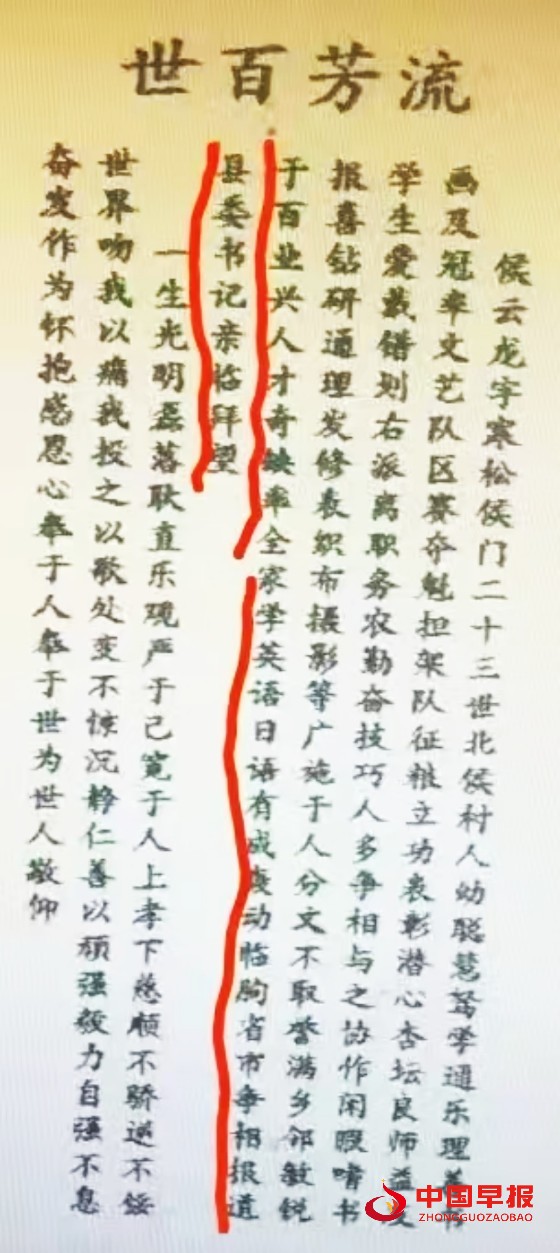 流芳百世
侯云龙字寒松侯门二十三世北侯村人幼聪慧驽学通乐理善书
画及冠率文艺队区赛夺魁担架队征粮立功表彰潜心杏坛良师益友
学生爱戴错划右派离职务农勤奋技巧人多争相与之协作闲暇嗜书
报喜钻研通理发修表织布摄影等广施于人分文不取誉满乡邻敏锐
于百业兴人才奇缺率全家学英语日语有成轰动临朐省市争相报道
县委书记亲临拜望
一生光明磊落耿直乐观严于己宽于人上孝下慈顺不骄逆不馁
世界吻我以痛我报之以歌处变不惊沉静仁善以顽强毅力自强不息
奋发作为怀抱感恩心奉于人奉于世为世人敬仰
中国早报
ZHONGGUOZAOBAO